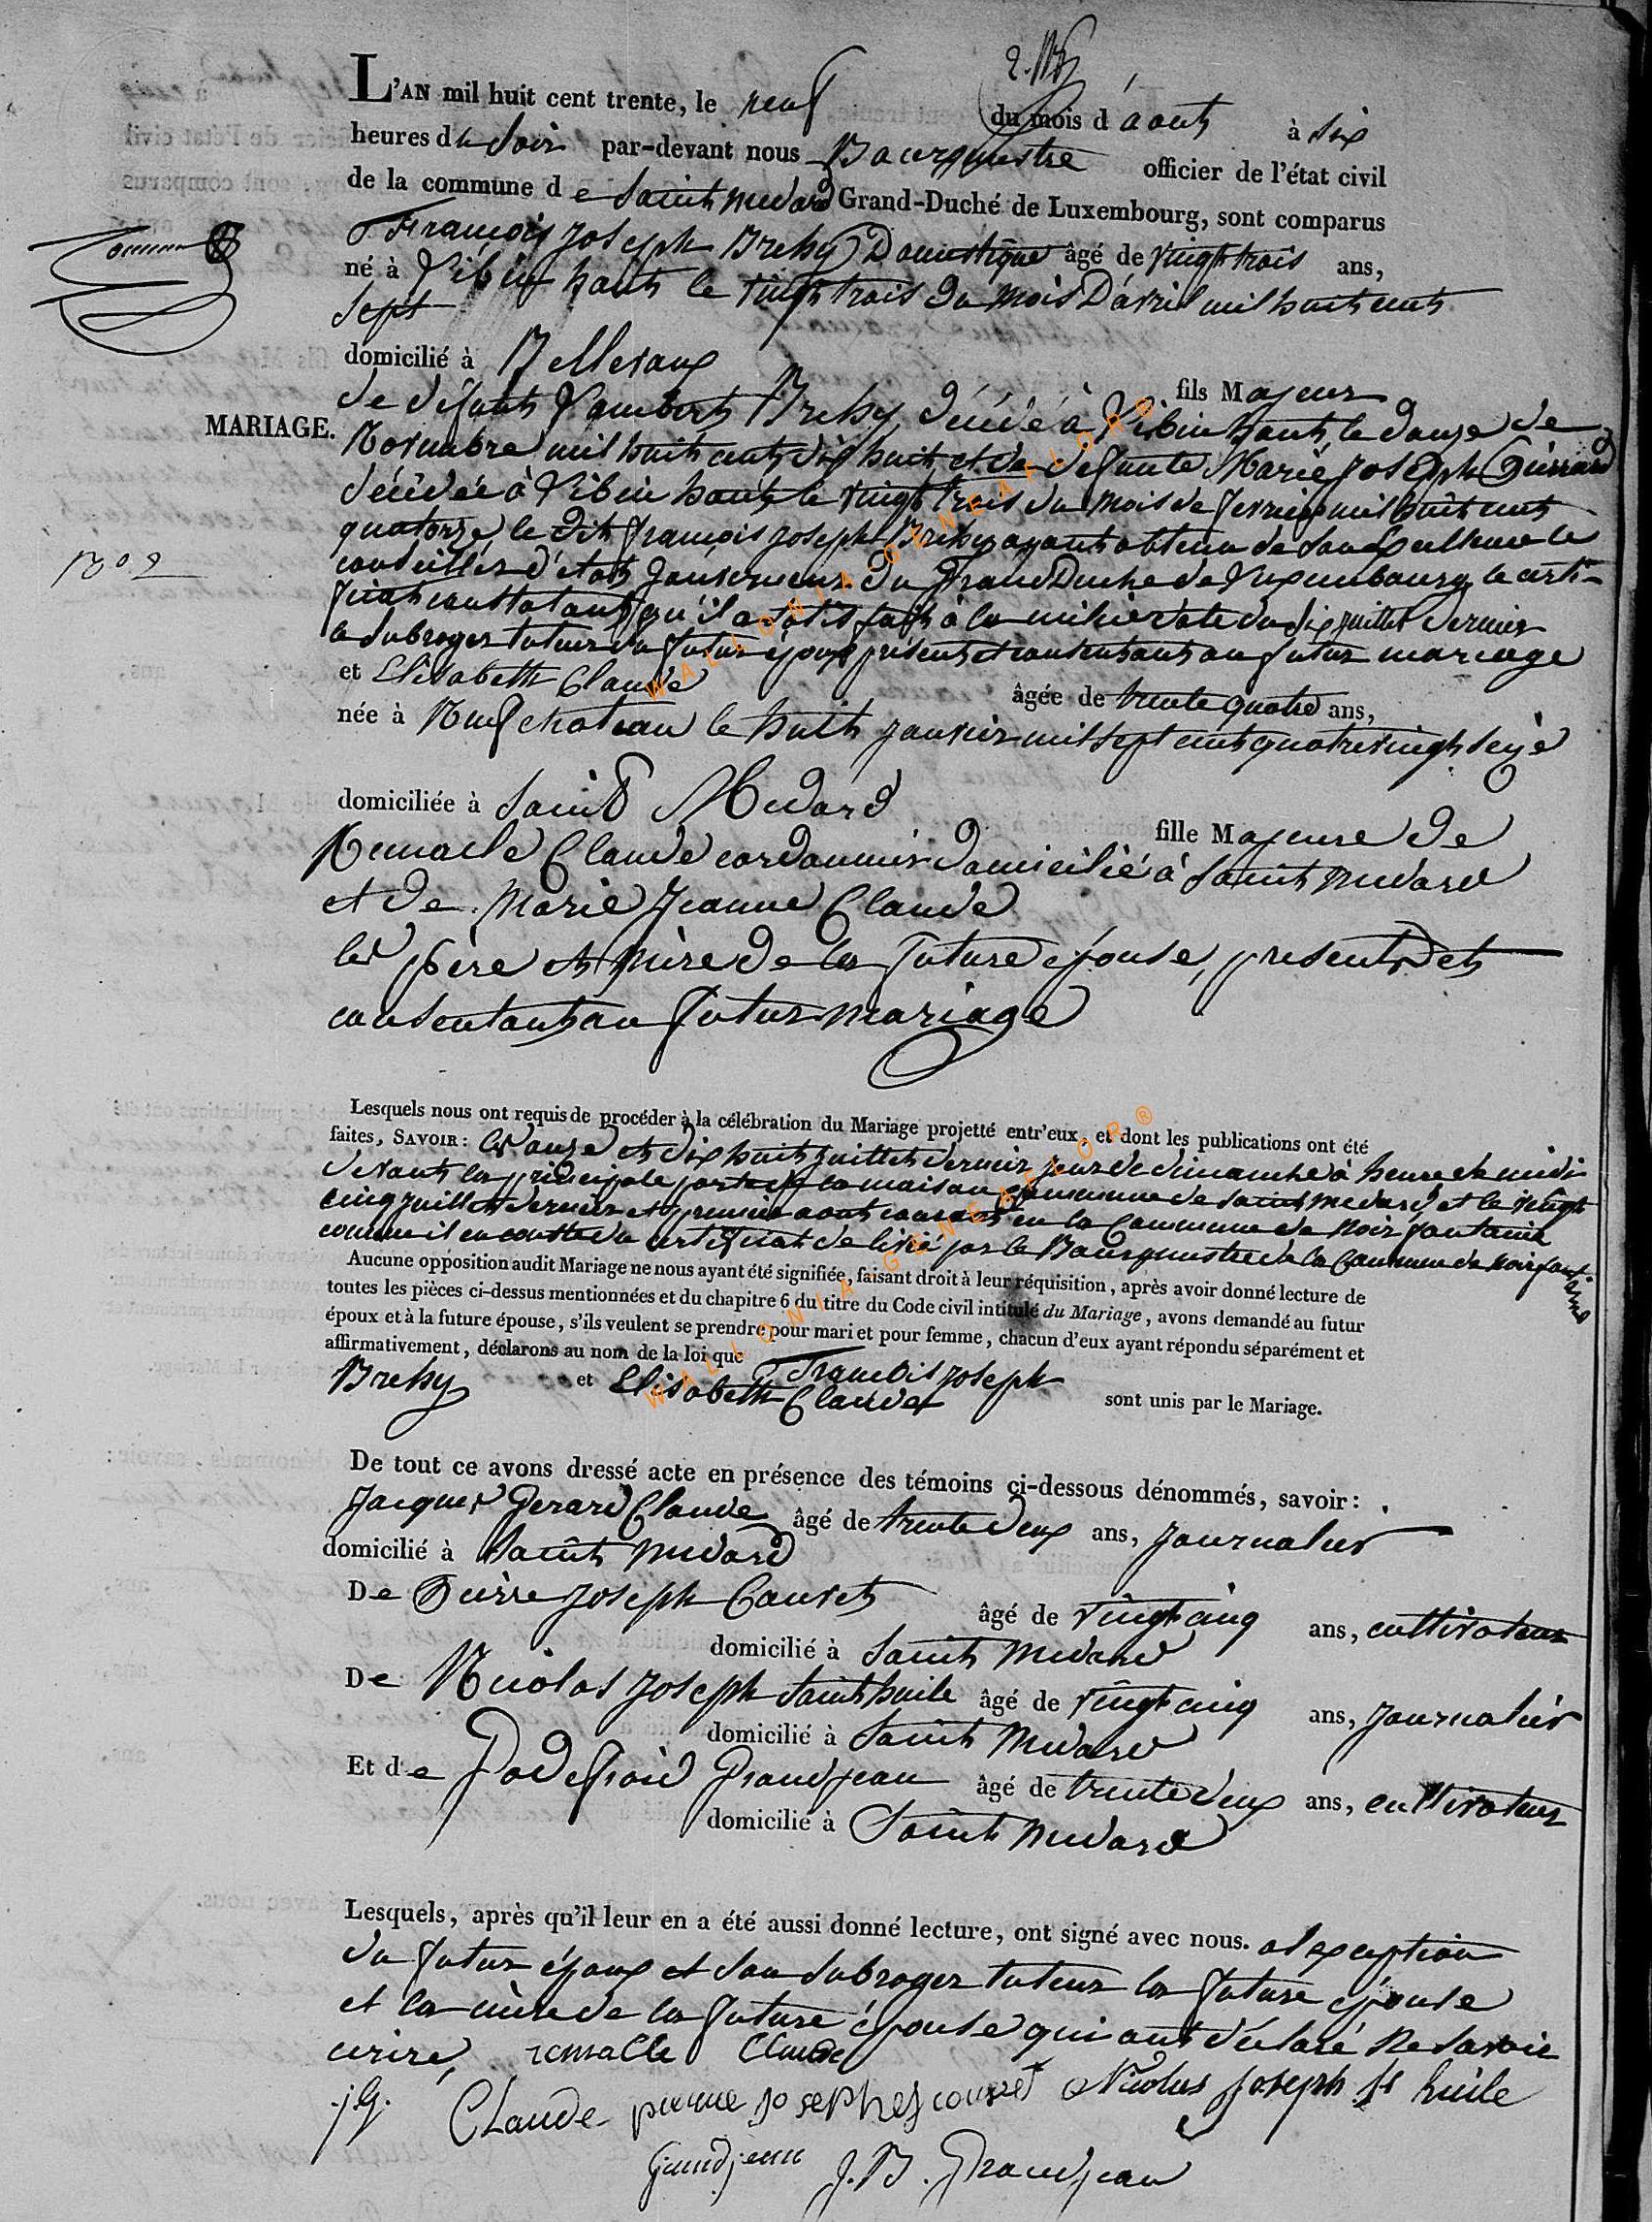 L'AN mil huit cent trente, le neuf du mois d'aout à six
heures du soir par-devant nous Bourgmestre officier de l'état civil
de la commune de Saint medard Grand-Duché de Luxembourg, sont comparus
François Joseph Brehy Domestique âgé de vingt trois ans,
né à Libin haut le vingt trois du mois D'avril mil huit cent
sept
domicilié à Bellevaux fils Majeur
MARIAGE.
de défunt Lambert Brehy, décédé à Libin haut, le douze de
Novembre mil huit cent dix huit et de defunte Marie joseph
décédée à Libin haut le vingt trois du mois de fevrier mil huit cent
quatorze le dit françois joseph Brehy ayant obtenu de Son Excellence le
conseiller d'état Gouverneur du Grand Duché de Luxembourg le certi-
ficat constatant qu'il a satisfait à la milice daté du dix juillet dernier
le subroger tuteur du futur époux présent et consentant au futur mariage
et Elisabeth Claude âgée de trente quatre ans,
née à Neufchateau le huit janvier mil sept cent quatre vingt seize
domiciliée à Saint Medard fille Majeure de
Remacle Claude cordonnier domicilié à Saint medard
et de Marie Jeanne Claude
les père et mère de la future épouse, présents et
consentant au futur mariage
Lesquels nous ont requis de procéder à la célébration du Mariage projetté entr'eux, et dont les publications ont été
faites, SAVOIR: les onze et dix huit juillet dernier jour de dimanche à heure de midi
devant la principale porte de la maison commune de Saint medard et le vingt
cinq juillet dernier et premier aout courant en la Commune de Noirfontaine
comme il en conste du certificat délivré par le Bourgmestre de la Commune de Noirfontaine
Aucune opposition audit Mariage ne nous ayant été signifiée, faisant droit à leur réquisition, après avoir donné lecture de
toutes les pièces ci-dessus mentionnées et du chapitre 6 du titre du Code civil intitulé du Mariage, avons demandé au futur
époux et à la future épouse, s'ils veulent se prendre pour mari et pour femme, chacun d'eux ayant répondu séparément et
affirmativement, déclarons au nom de la loi que François joseph
Brehy et Elisabeth Claude sont unis par le Mariage.
De tout ce avons dressé acte en présence des témoins ci-dessous dénommés, savoir:
Jacques Gerard Claude âgé de trente deux ans, journalier
domicilié à Saint medard
De Pierre joseph Couvet âgé de vingt cinq ans, cultivateur
domicilié à Saint medard
De Nicolas joseph Sainthuile âgé de vingt cinq ans, journalier
domicilié à Saint medard
Et de Godefroid Grandjean âgé de trente deux ans, cultivateur
domicilié à Saint medard
Lesquels, après qu'il leur en a été aussi donné lecture, ont signé avec nous. a l'exception
du futur époux et son subroger tuteur la future épouse
et la mère de la future épouse qui ont déclaré ne savoir
écrire, remacle Claude
j g. Claude Nicolas joseph St huile
Grandjean J. B. Grandjean
WALLONIA GENEALOR®
WALLONIA GENEALOR®